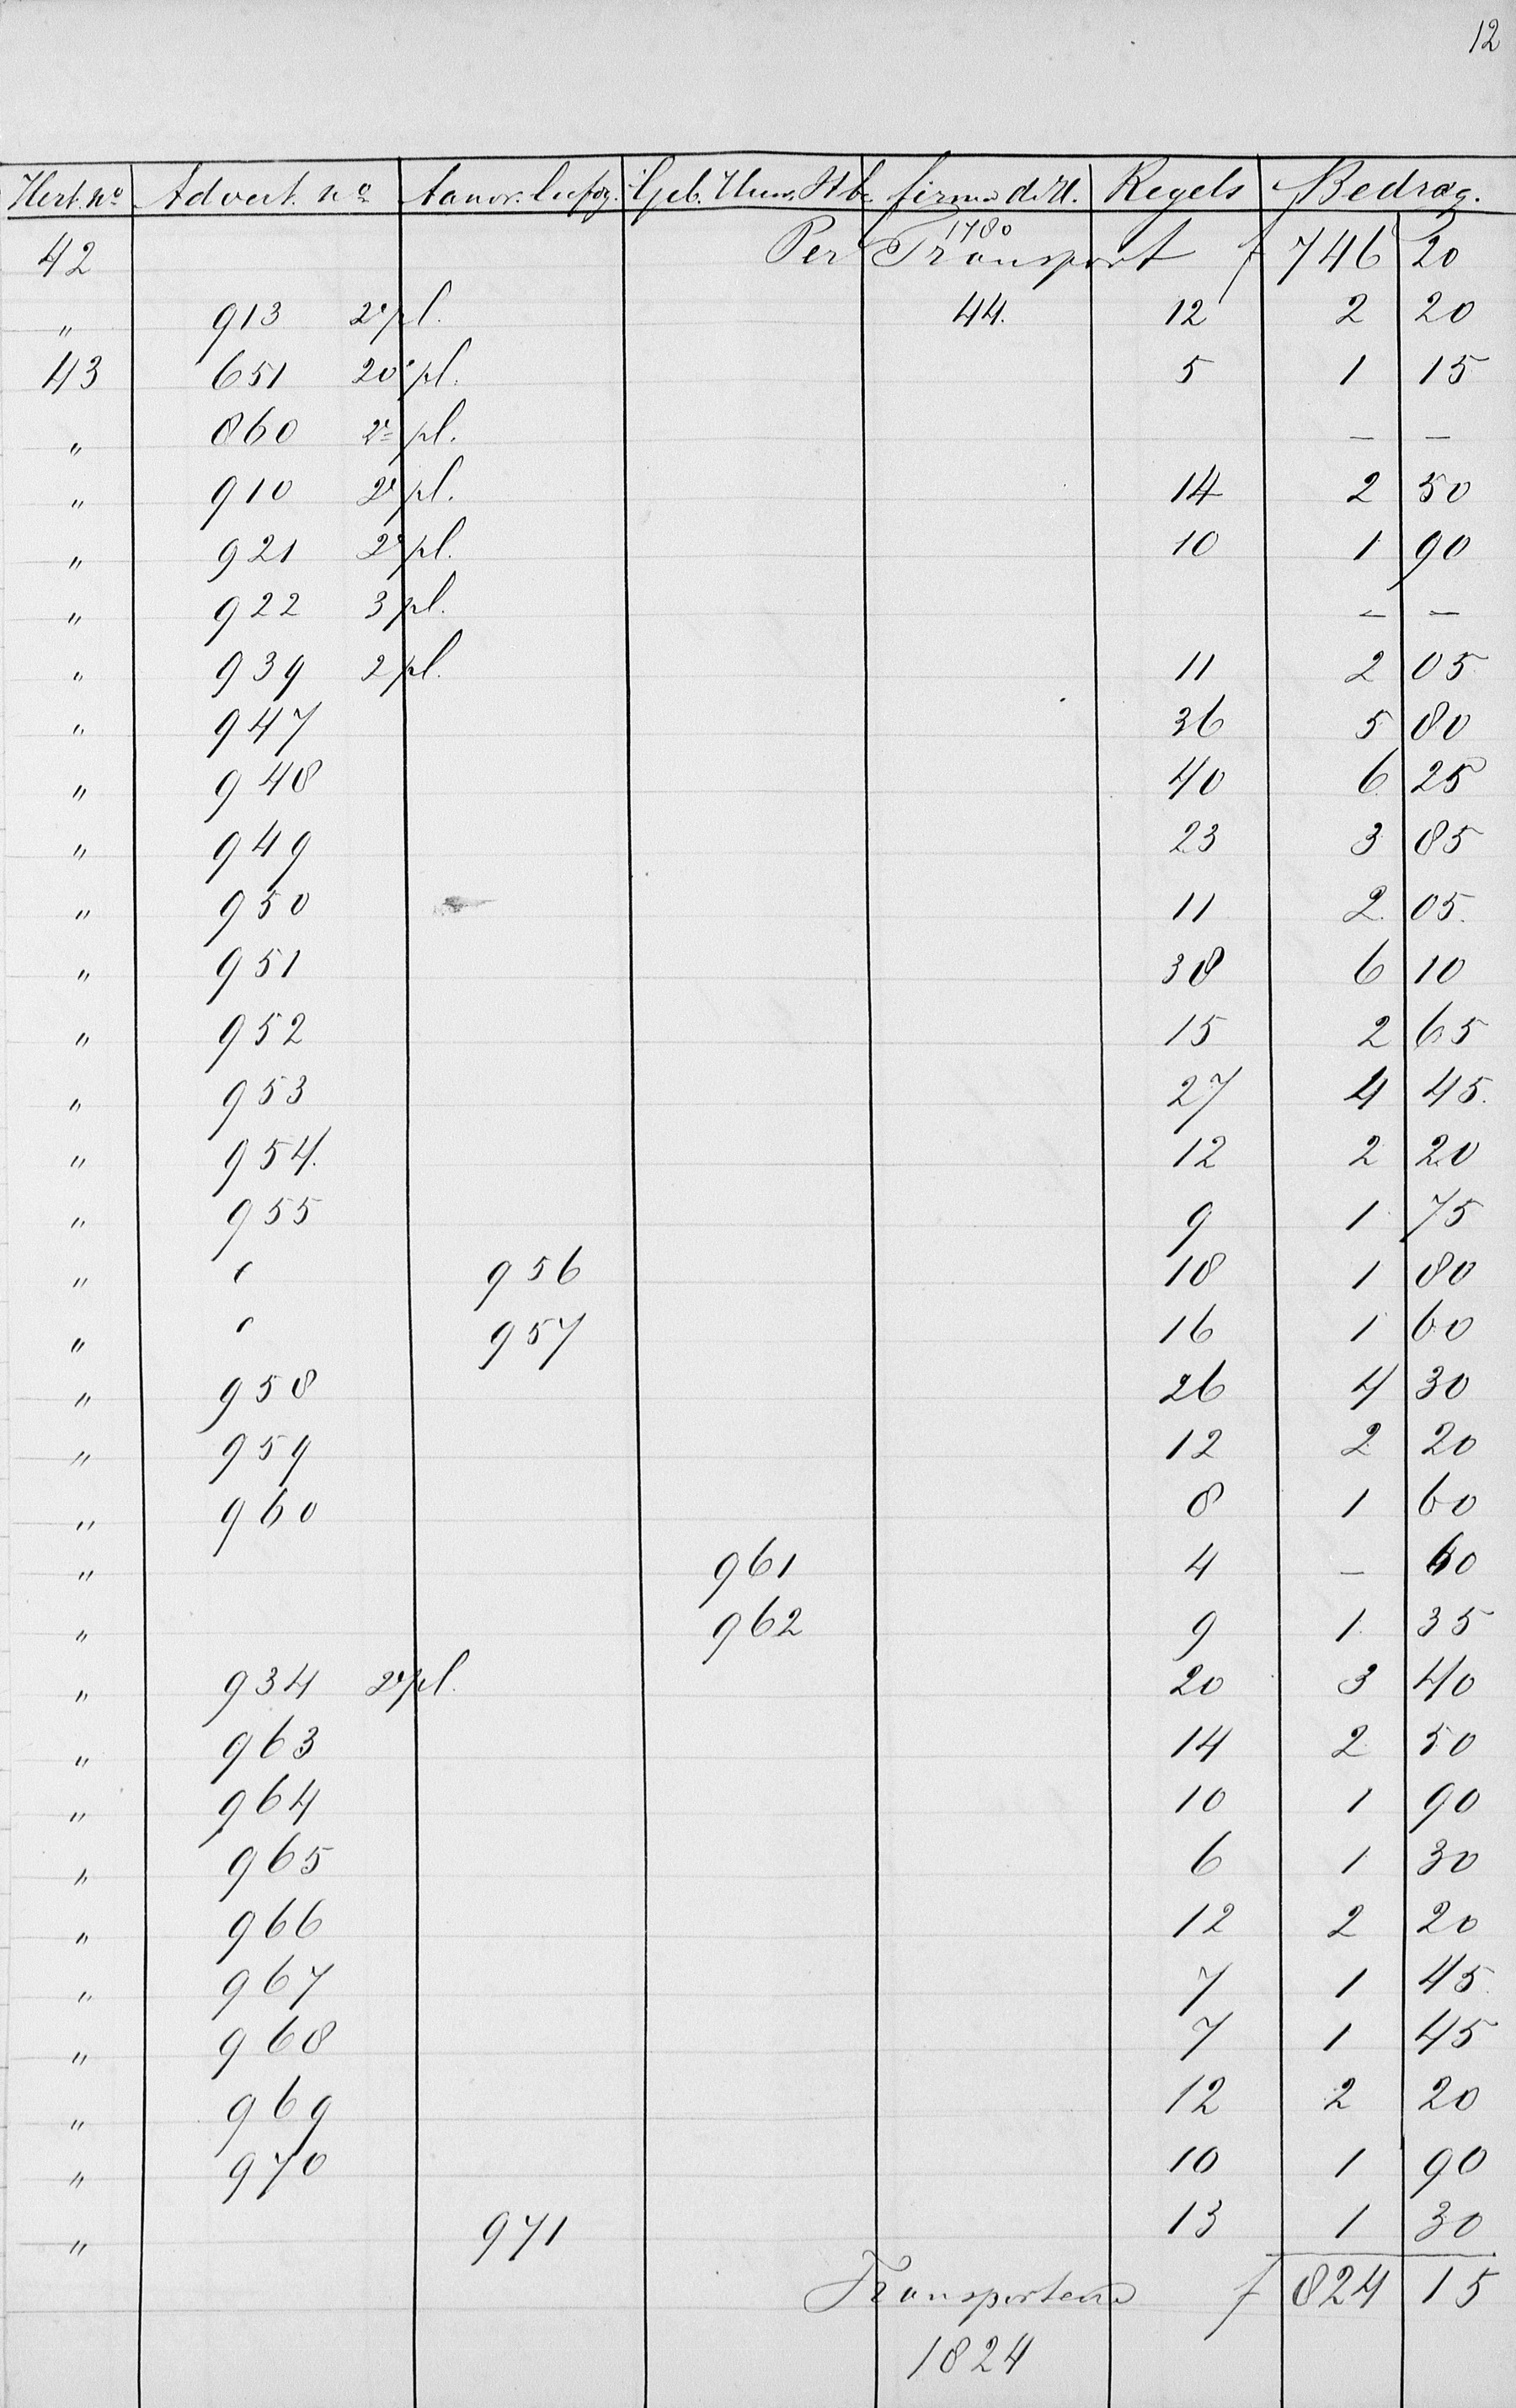 12
Hert. no Advert. no Regels Bedrag.
1780
42 Per Transport f 746 20
" 913 2e pl. 44. 12 2 20
43 651 20e pl. 5 1 15
" 860 2e pl. — —
" 910 2e pl. 14 2 50
" 921 2e pl. 10 1 90
" 922 3 pl. — —
" 939 2 pl. 11 2 05
" 947 36 5 80
" 948 40 6 25
" 949 23 3 85
" 950 11 2 05.
" 951 38 6 10
" 952 15 2 65
" 953 27 4 45.
" 954. 12 2 20
" 955 9 1 75
" " 956 18 1 80
" " 957 16 1 60
" 958 26 4 30
" 959 12 2 20
" 960 8 1 60
" 961 4 — 60
" 962 9 1 35
" 934 2e pl. 20 3 40
" 963 14 2 50
" 964 10 1 90
" 965 6 1 30
" 966 12 2 20
" 967 7 1 45
" 968 7 1 45
" 969 12 2 20
" 970 10 1 90
" 971 13 1 30
Transportere f 824 15
1824